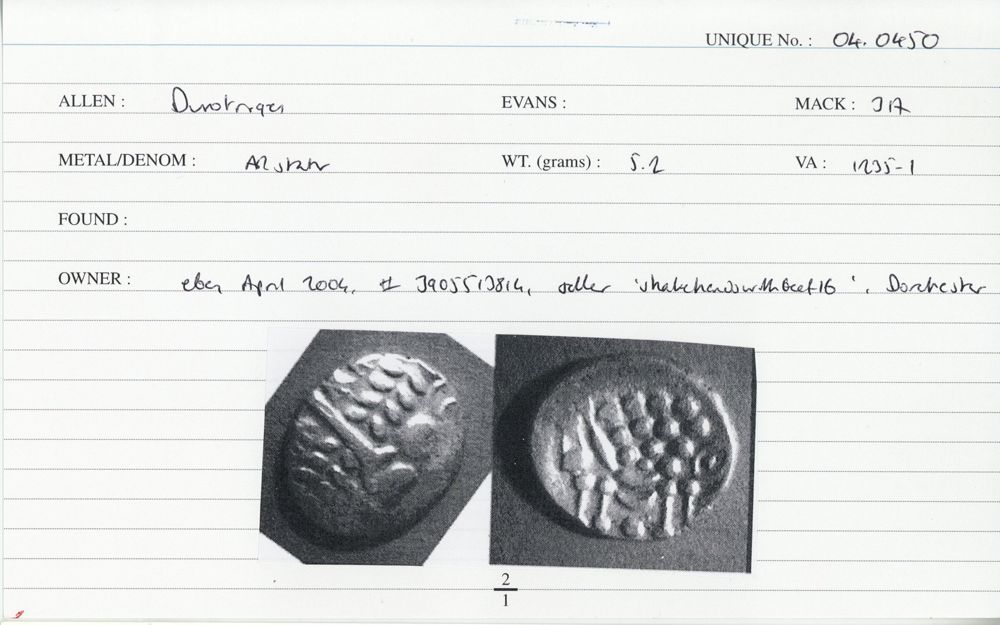 UNIQUE No. : 04.0450
ALLEN : Durotriges EVANS : MACK : 317
METAL/DENOM : AR stater WT. (grams) : 5.2 VA : 1235-1
FOUND :
OWNER : ebay April 2004, # 3905513814, seller 'shakehandswithbeef16', Dorchester
2
1